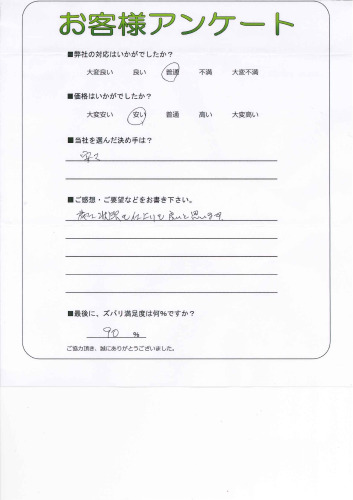 お客様アンケート
■弊社の対応はいかがでしたか？
大変良い 良い 普通 不満 大変不満
■価格はいかがでしたか？
大変安い 安い 普通 高い 大変高い
■当社を選んだ決め手は？
安さ
■ご感想・ご要望などをお書き下さい。
も仕上りも良いと思います
■最後に、ズバリ満足度は何%ですか？
90 %
ご協力頂き、誠にありがとうございました。